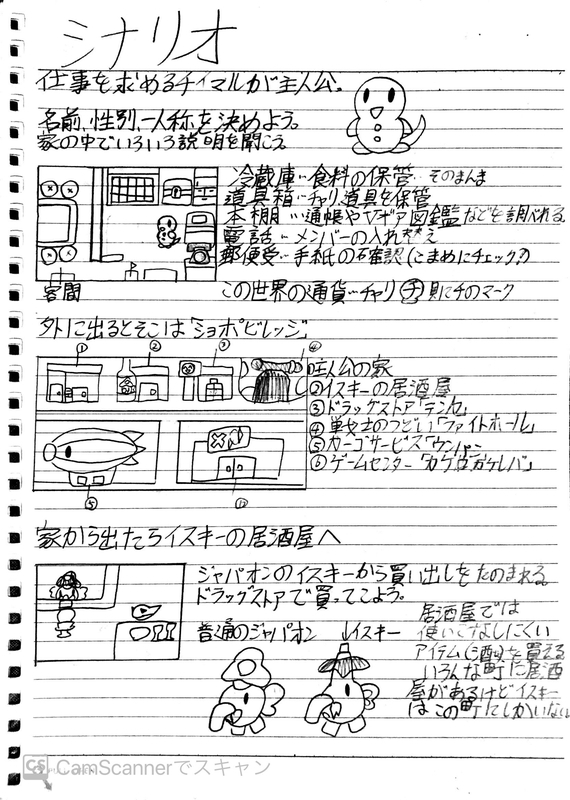 シナリオ
仕事を求めるチイマルが主人公。
名前、性別、一人称を決めよう。
家の中でいろいろ説明を聞こえ
冷蔵庫…食料の保管… そのまんま
道具箱…チャリ、道具を保管
本棚…通帳やVギア図鑑などを調べれる
電話…メンバーの入れ替え
郵便受…手紙の確認(こまめにチェック?)
客間
この世界の通貨…チャリ チ 則にチのマーク
外に出るとそこは「ショボビレッジ」
① ② ③ ④
①主人公の家
②イスキーの居酒屋
③ドラッグストア「テンセ」
④戦士のつどい「ファイトホール」
⑤カーゴサービス「ウンパー」
⑥ゲームセンター「カケロガケレバ」
⑤
家から出たらイスキーの居酒屋へ
ジャパオンのイスキーから買い出しをたのまれる。
ドラッグストアで買ってこよう。
普通のジャパオン ↓イスキー
居酒屋では
使いこなしにくい
アイテム(酒)を買える
いろんな町に居酒
屋があるけどイスキー
はこの町にしかいない
CS CamScannerでスキャン